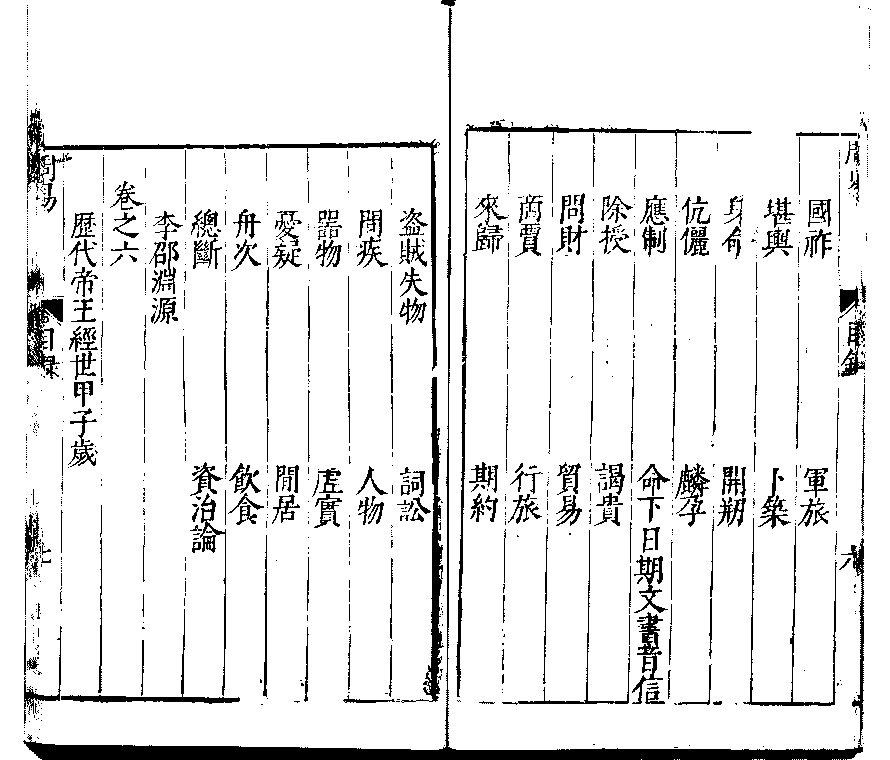 國祚 軍旅
堪輿 卜築
身命 開朔
伉儷 麟孕
應制 命下日期文書音信
除授 謁貴
問財 貿易
啇賈 行旅
來歸 期約
目錄
六
盗賊失物 詞訟
問疾 人物
噐物 虗實
憂疑 閒居
舟次 飲食
緫斷 資治論
李邵淵源
卷之六
歷代帝王經世甲子歲
周易
目錄
七